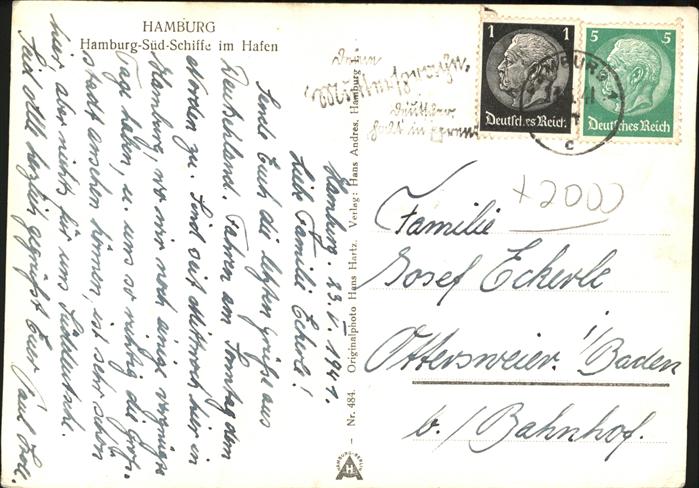 HAMBURG
Hamburg-Süd-Schiffe im Hafen
1 1
Deutsches Reich
5 5
Deutsches Reich
HAMBURG
41
c
Deine
Muttersprache,
Deutscher
halt in Ehren
+2000
Familie
Josef Eckerle
Ottersweier i/Baden
b./ Bahnhof.
Hamburg. 23. V. 1941.
Lieb. Familie Eckerle!
Sende Euch die letzten Grüße aus
Deutschland. Fahren am Sonntag dem
Norden zu. Sind seit Mittwoch hier in
Hamburg, wo wir noch einige vergnügte
Tage haben, u. uns so richtig die Groß-
stadt ansehen können, ist sehr schön
hier, aber nichts für uns Süddeutsche.
Seid Alle herzlich gegrüßt Euer Paul
Nr. 484. Originalphoto Hans Hartz. Verlag: Hans Andres, Hamburg
HAMBURG-BERLIN
HA